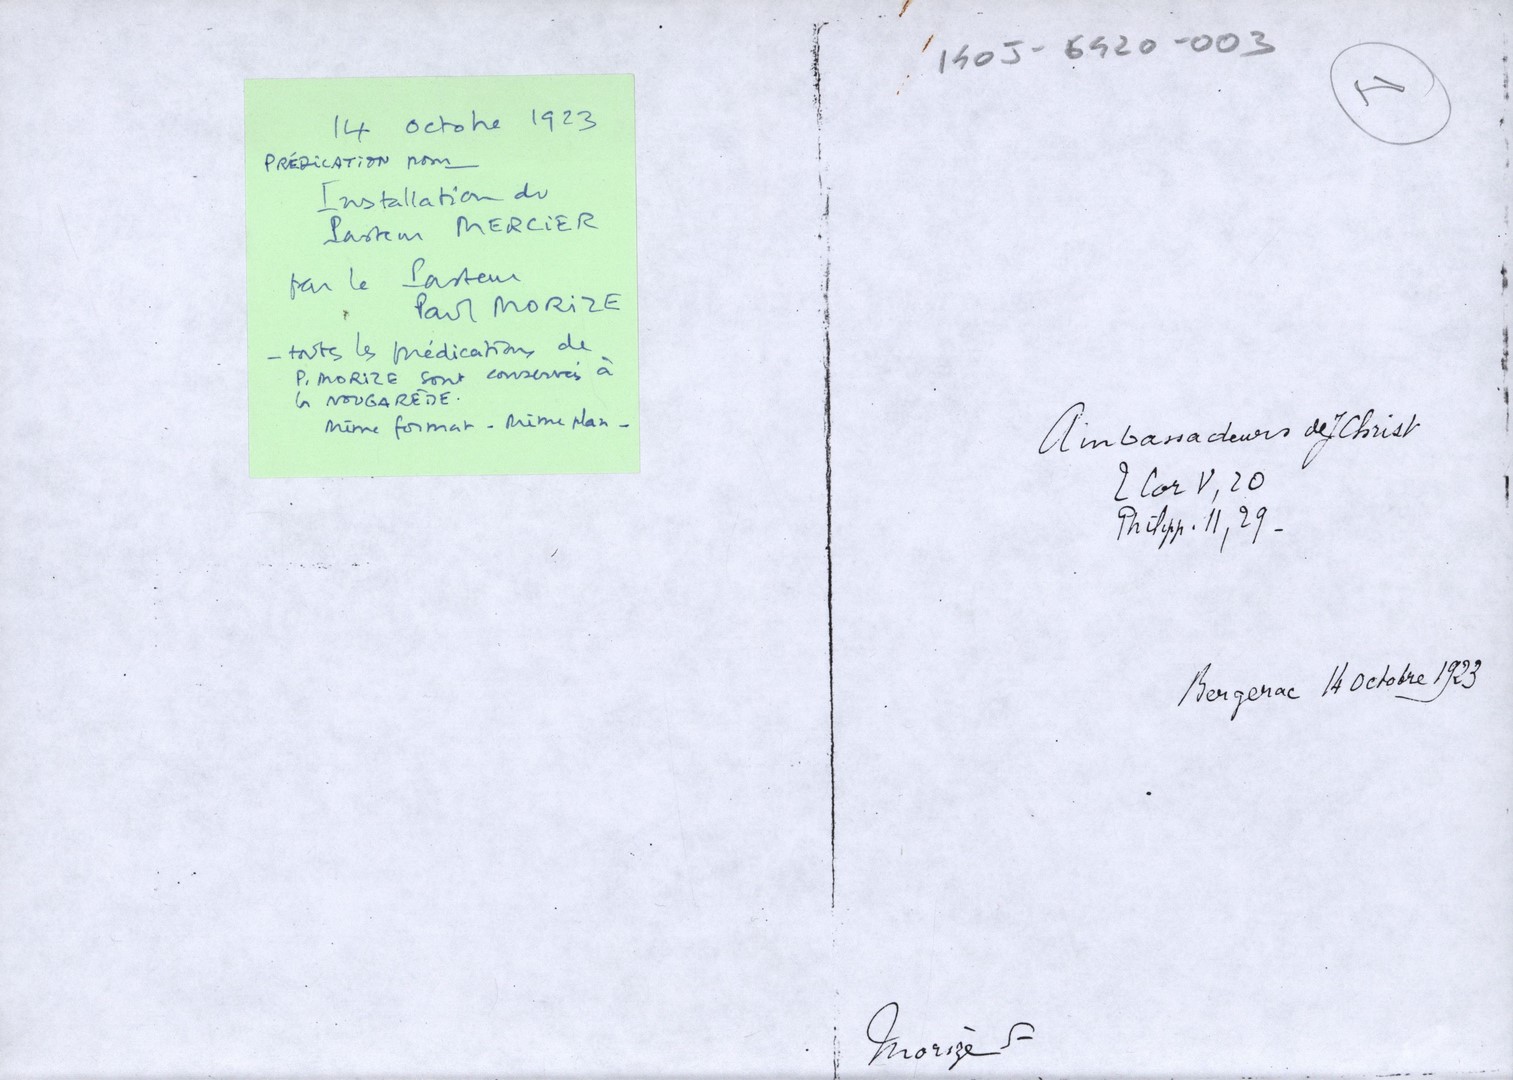 14 octobre 1923
PRÉDICATION pour
Installation du
Pasteur MERCIER
par le Pasteur
Paul MORIZE
- toutes les prédications de
P. MORIZE sont conservées à
la NOUGARÈDE.
même format - même plan -
140J- 6420-003
Ambassadeurs de J Christ
2 Cor V, 20
Philipp. II, 29 -
Bergerac 14 octobre 1923
Morize